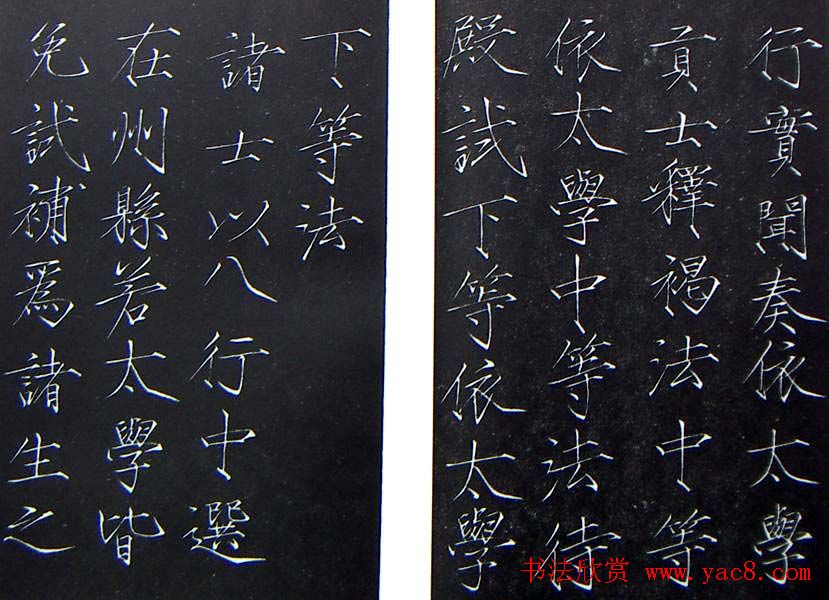 行實聞奏依太學
貢士釋褐法中等
依太學中等法待
殿試下等依太學
下等法
諸士以八行中選
在州縣若太學皆
免試補爲諸生之
书法欣赏 www.yac8.com